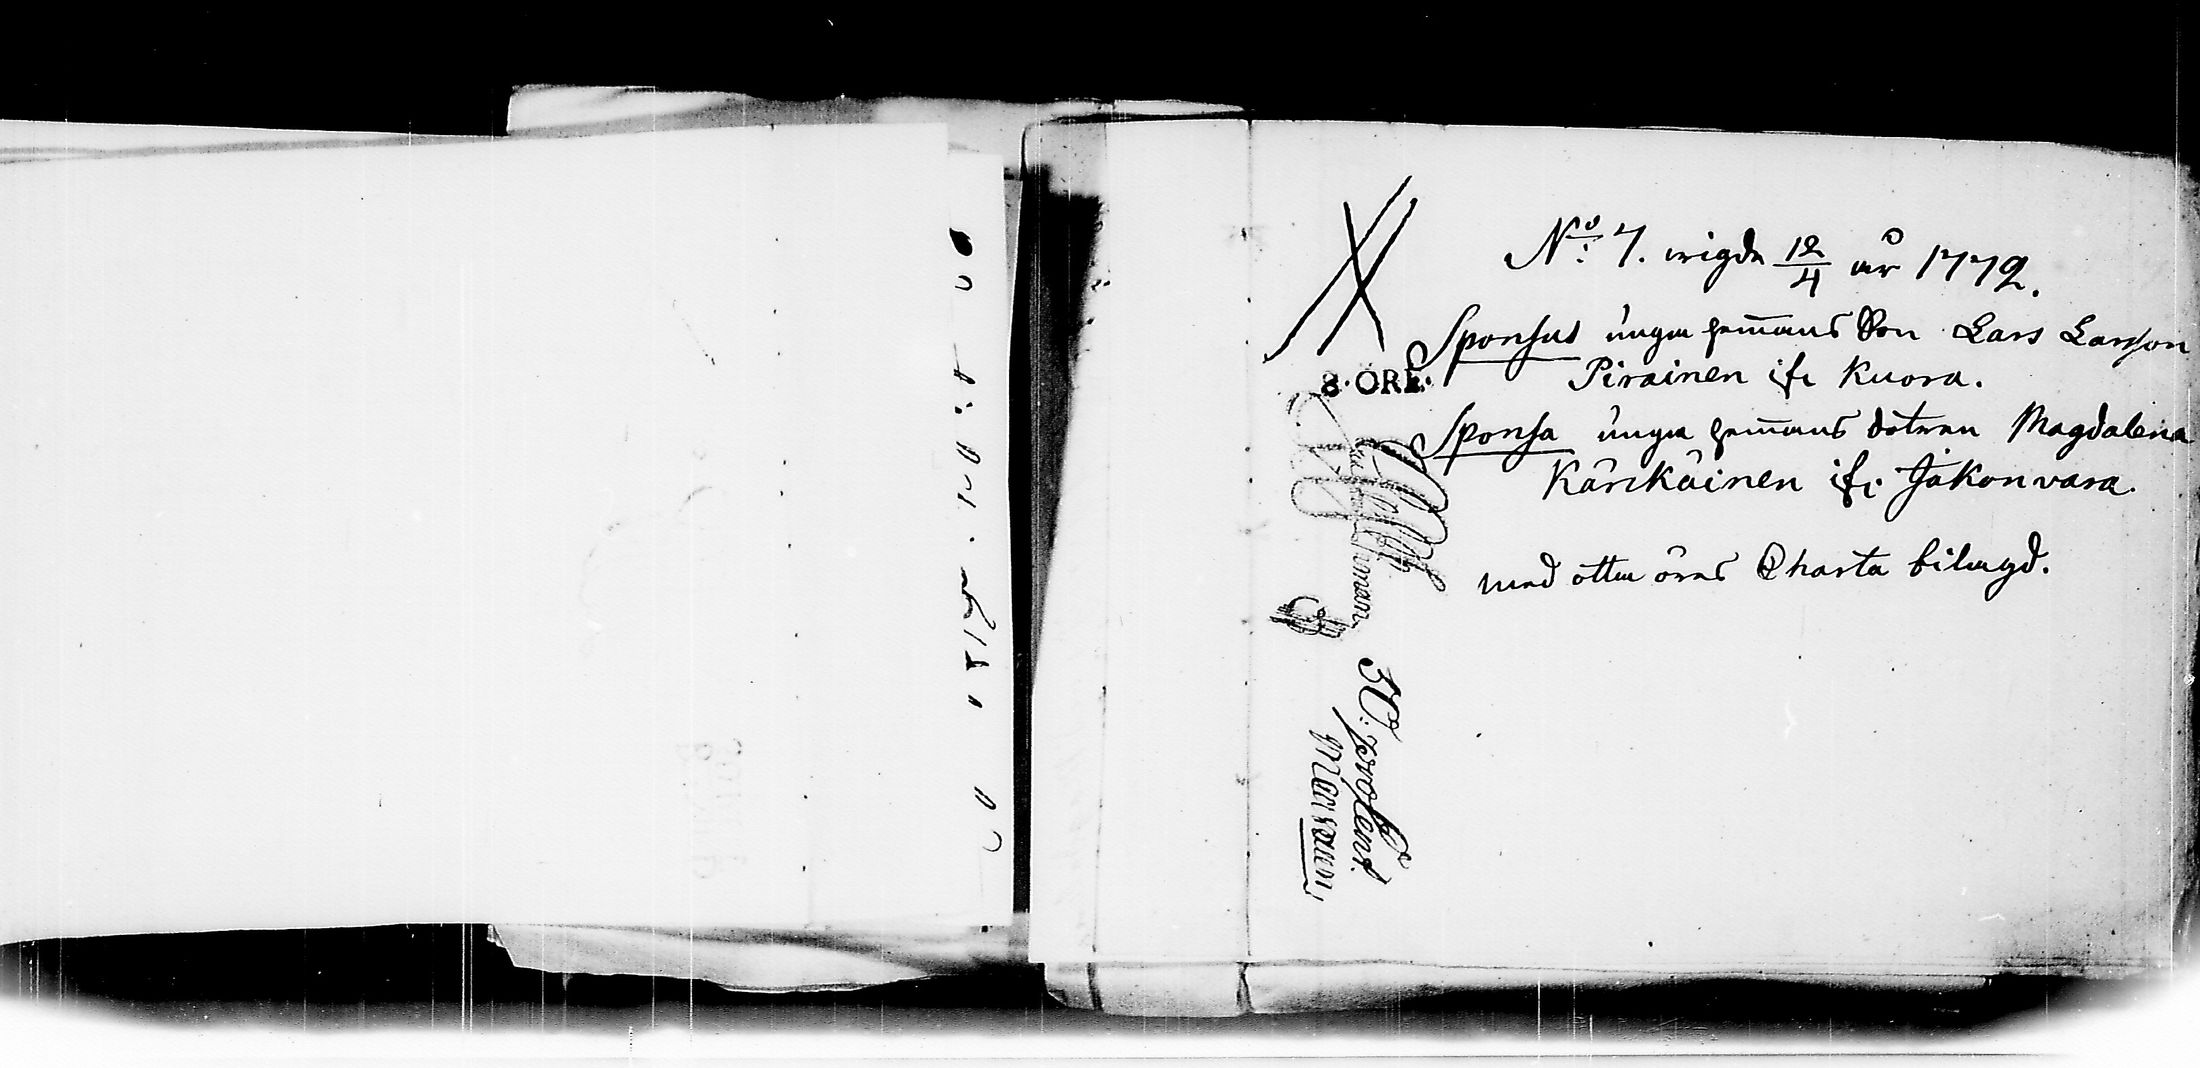 No: 7. wigde 12/4 år 1772.
Sponsus unga hemans Son Lars Larsson
Pirainen ifr Kuora.
Sponsa unga hemans doteren Magdalena
Kärckäinen ifr. Jakonvara.
med otta öres Charta bilagd.
8·ÖRE·